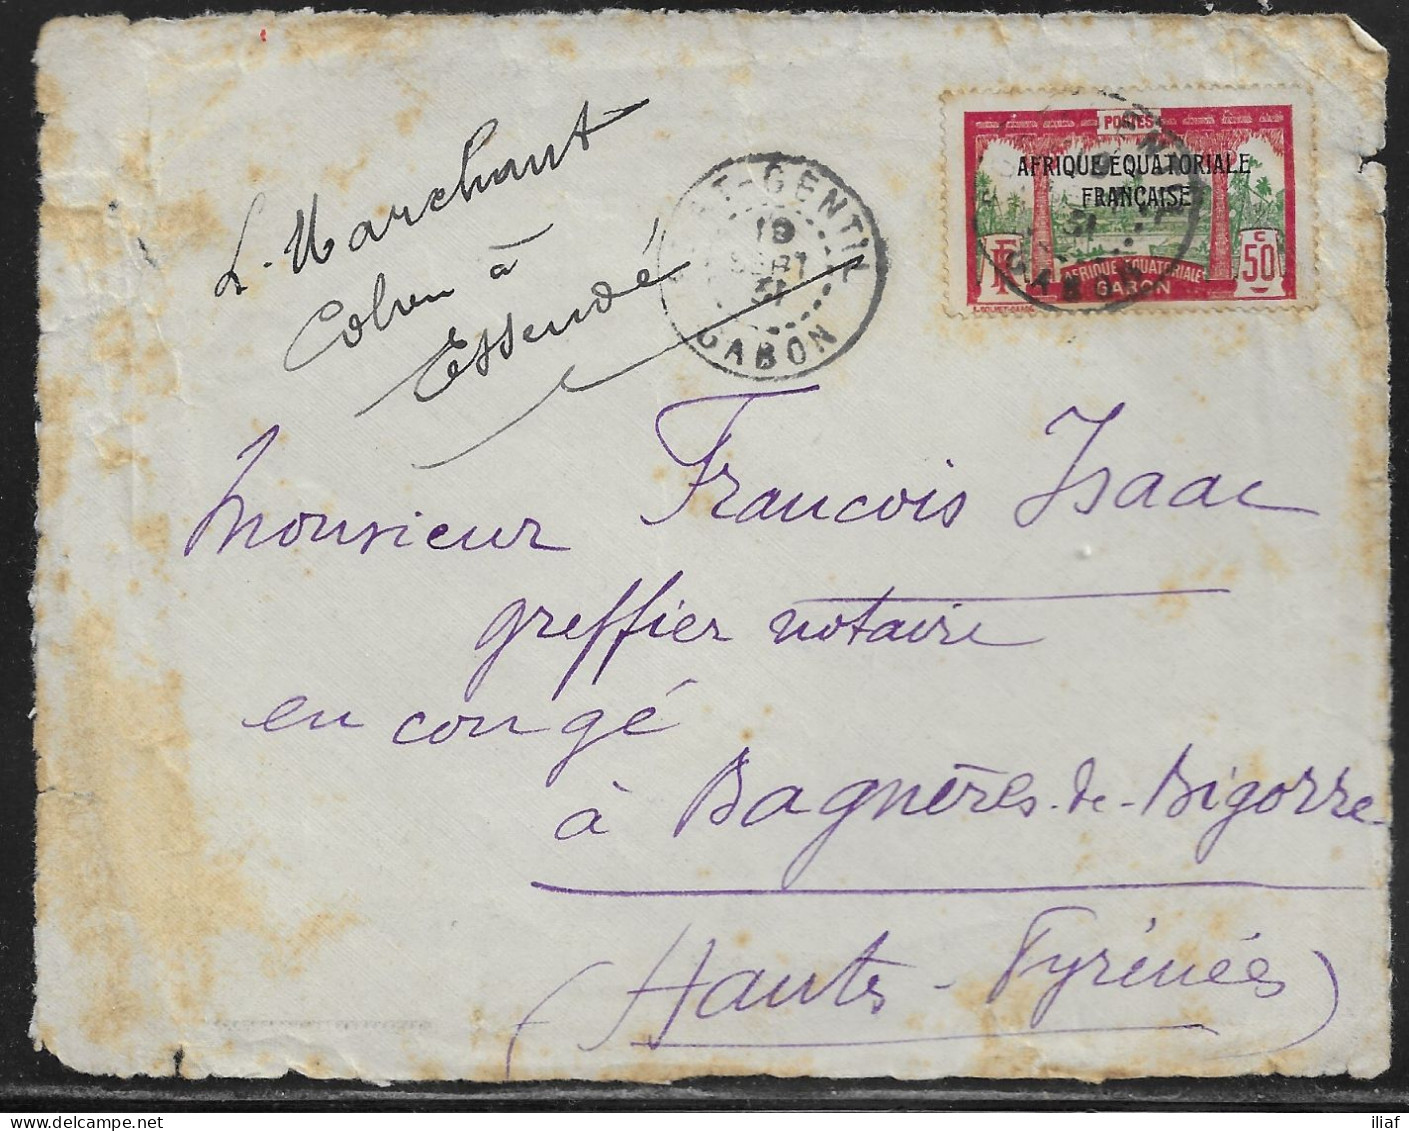 L. Marchant
Colon à
Essendé
PORT-GENTIL
19
SEPT
31
GABON
POSTES
AFRIQUE ÉQUATORIALE
FRANÇAISE
RF
AFRIQUE ÉQUATORIALE
GABON
50 C
Monsieur Francois Isaac
greffier notaire
en congé
à Bagnères-de-Bigorre
(Hautes-Pyrénées)
iliaf